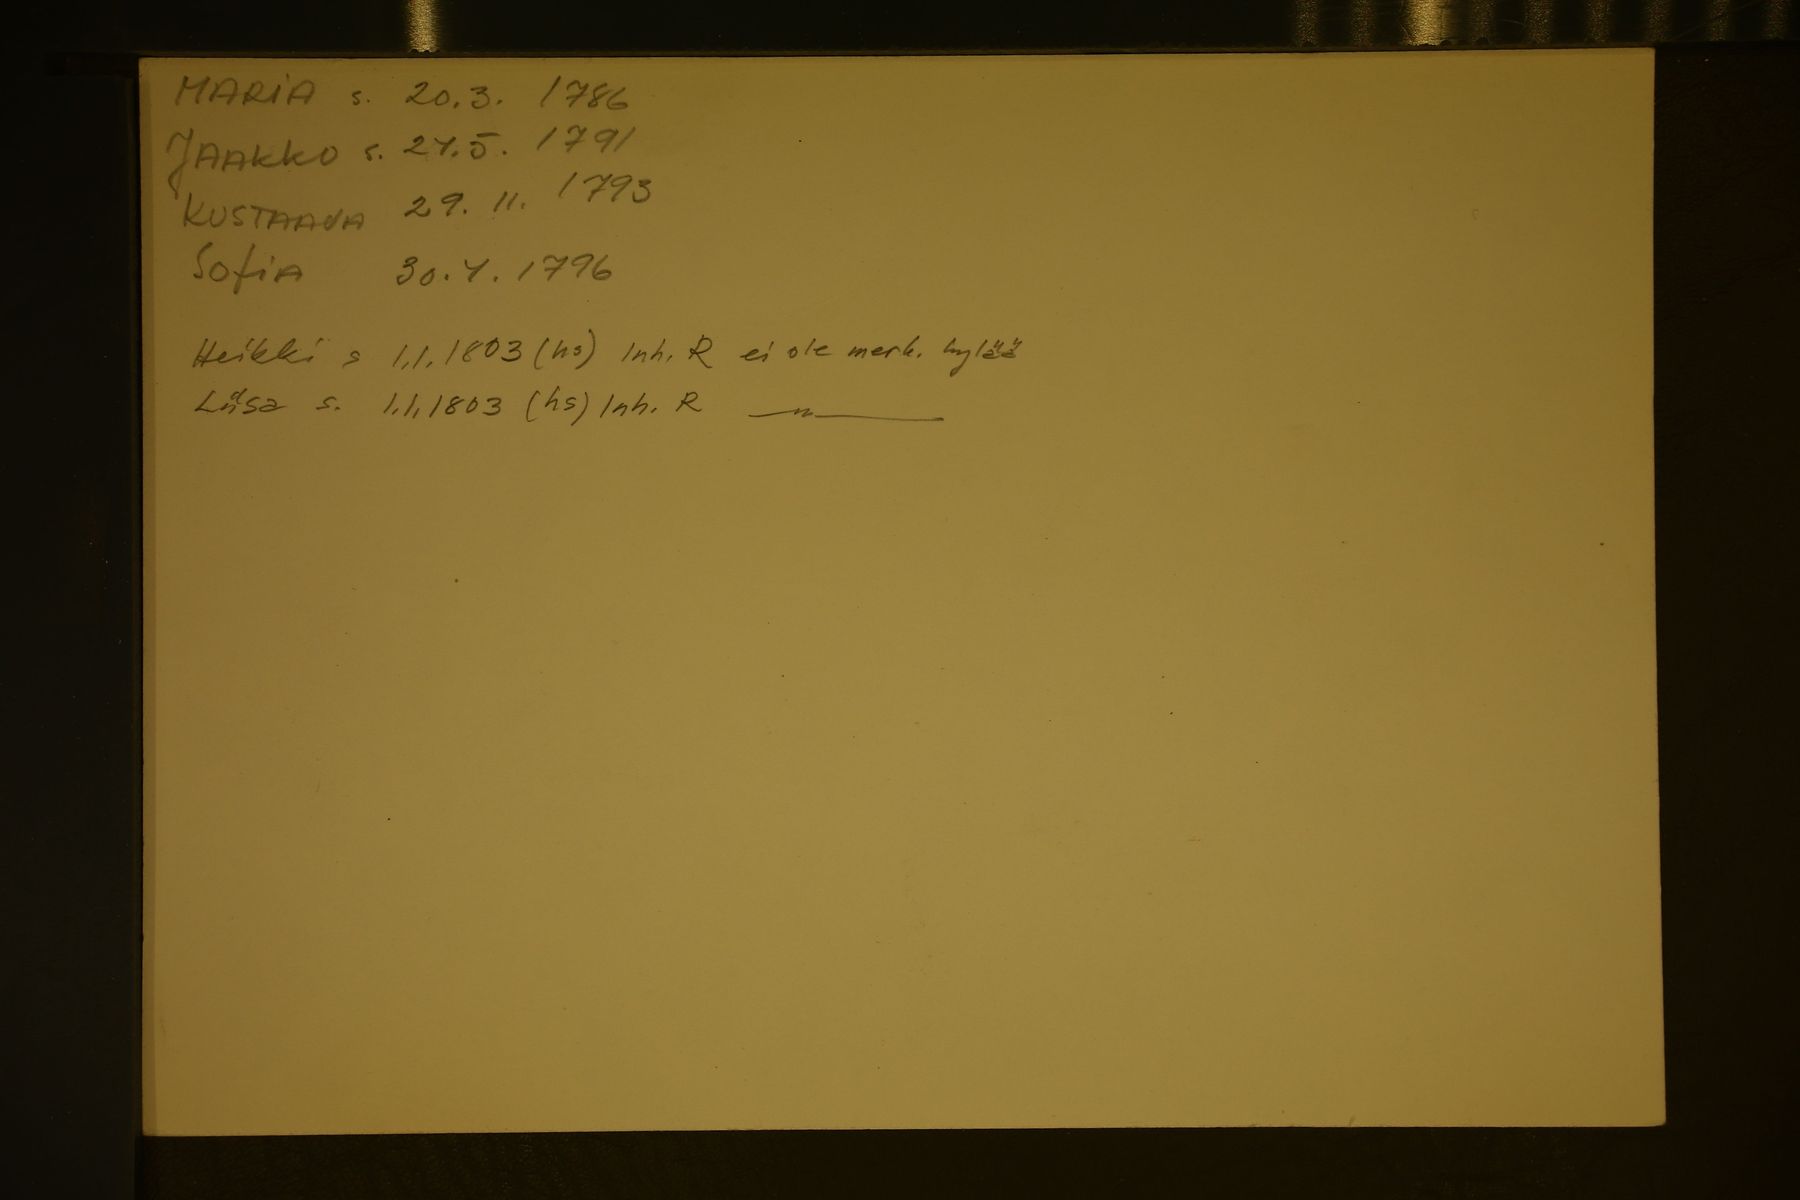 MARIA s. 20.3. 1786
JAAKKO s. 24.5. 1791
KUSTAAVA 29. 11. 1793
Sofia 30.4. 1796
Heikki s 1.1.1803 (hs) Inh. R ei ole merk. kylää
Liisa s. 1.1.1803 (hs) Inh. R —"—